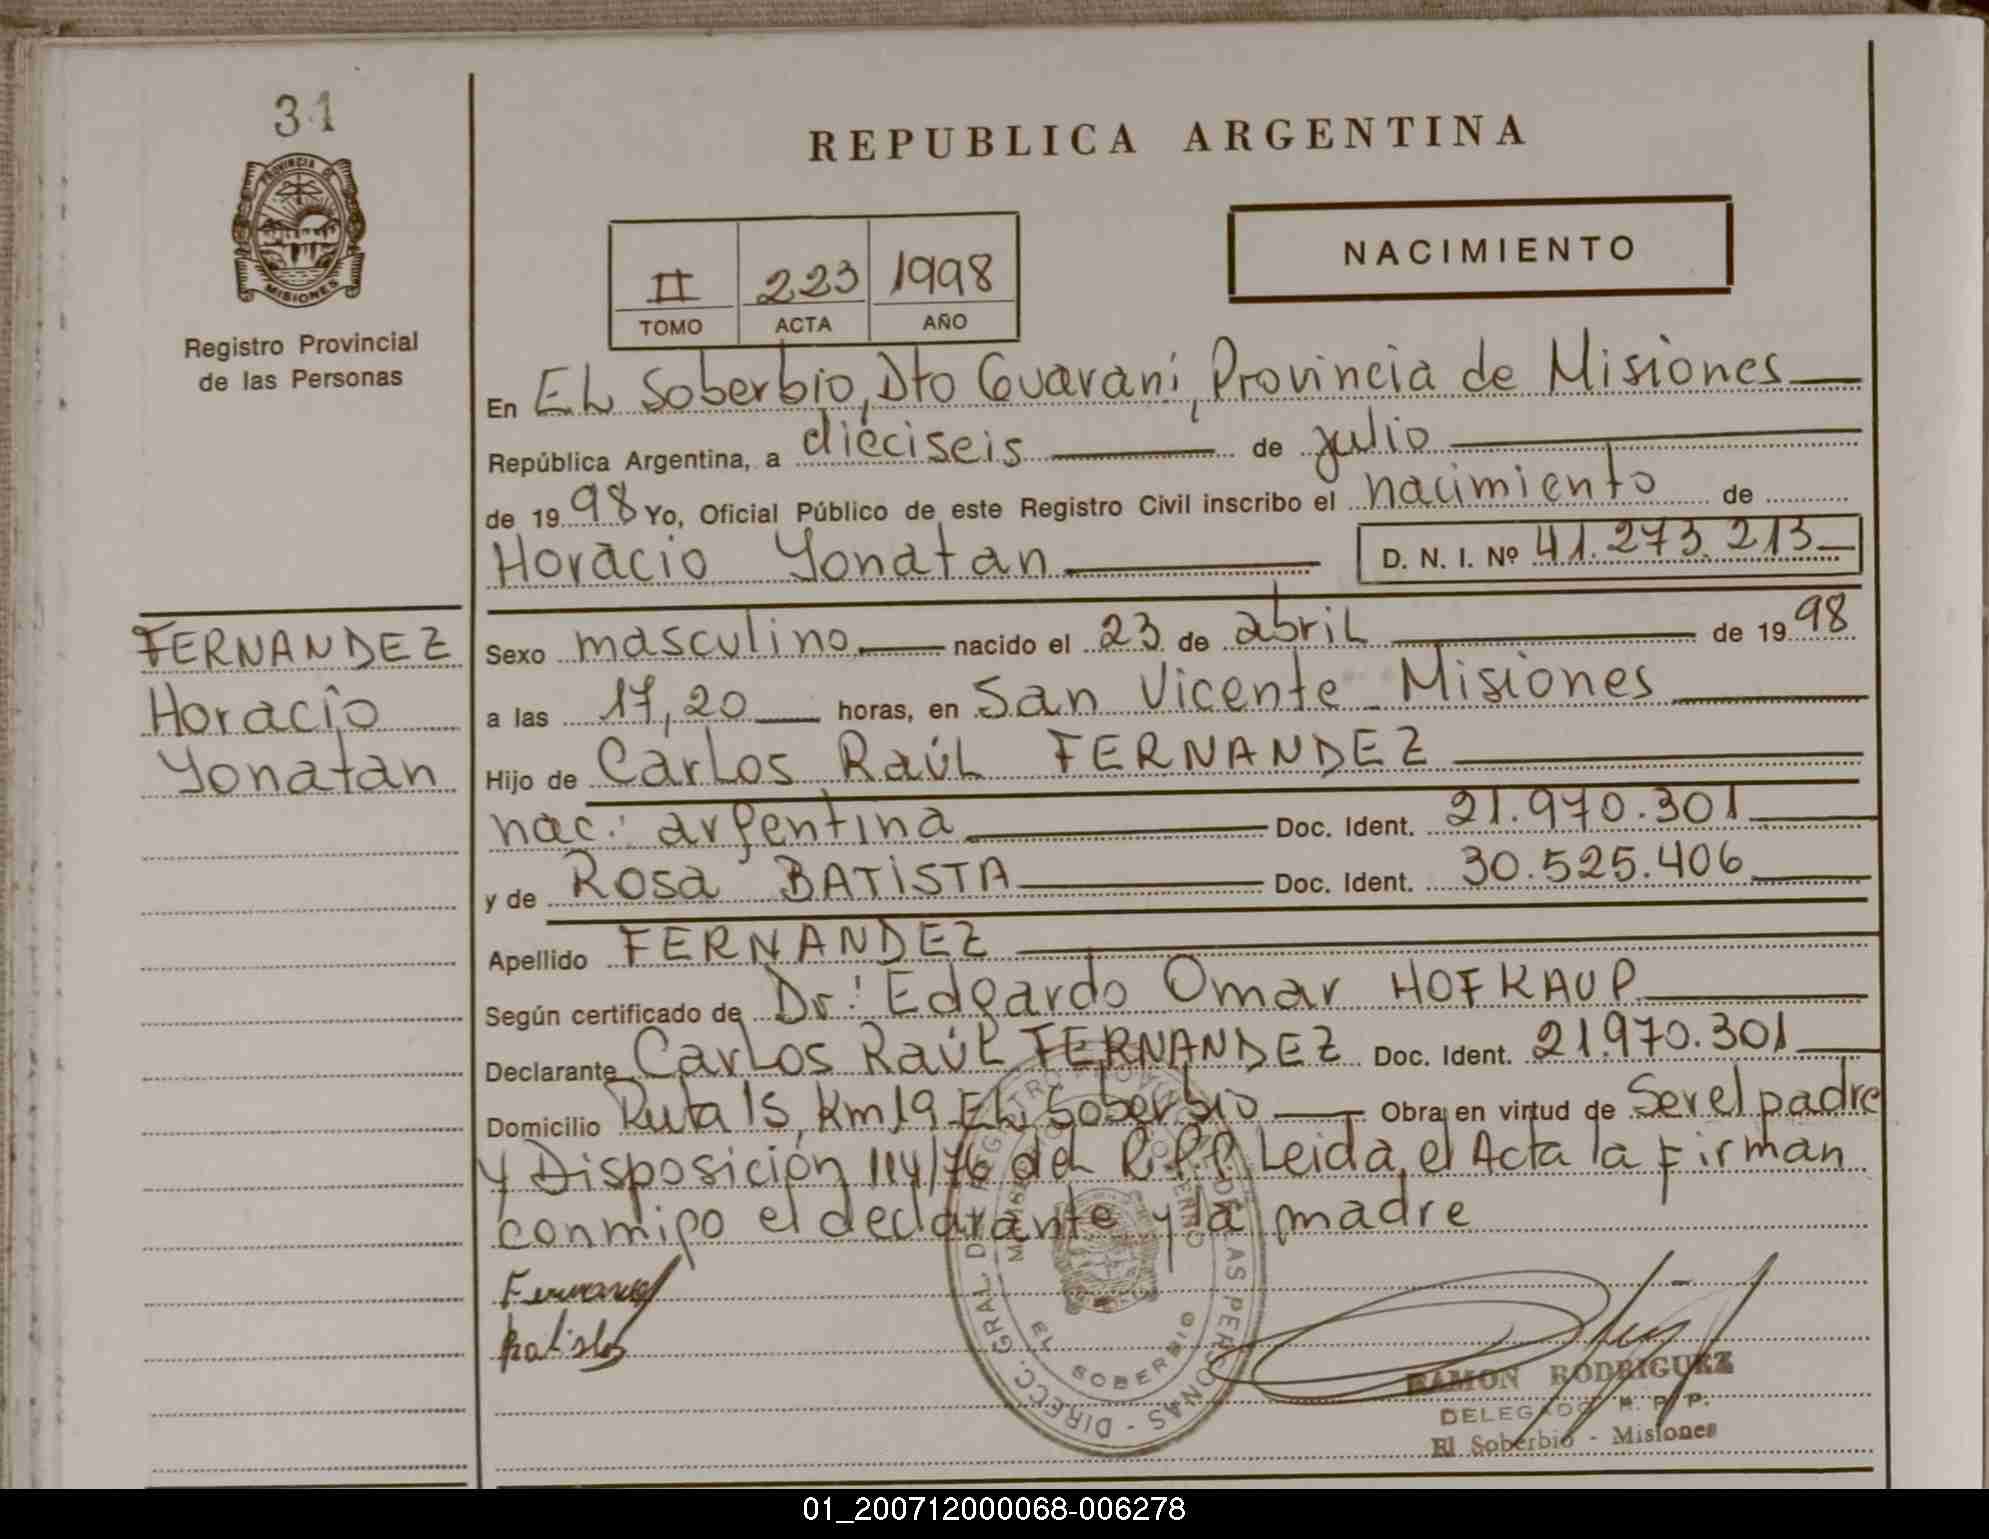 31
PROVINCIA DE
MISIONES
Registro Provincial
de las Personas
REPUBLICA ARGENTINA
II 223 1998
TOMO ACTA AÑO
NACIMIENTO
En EL Soberbio, Dto Guaraní, Provincia de Misiones
República Argentina, a dieciseis de julio
de 1998 Yo, Oficial Público de este Registro Civil inscribo el nacimiento de
Horacio Yonatan D. N. I. Nº 41.273.213
FERNANDEZ
Horacio
Yonatan
Sexo masculino nacido el 23 de abril de 1998
a las 17,20 horas, en San Vicente - Misiones
Hijo de Carlos Raúl FERNANDEZ
nac: argentina Doc. Ident. 21.970.301
y de Rosa BATISTA Doc. Ident. 30.525.406
Apellido FERNANDEZ
Según certificado de Dr: Edgardo Omar HOFKAUP
Declarante Carlos Raúl FERNANDEZ Doc. Ident. 21.970.301
Domicilio Ruta 15, Km 19 EL Soberbio Obra en virtud de Ser el padre
y Disposición 114/76 del R.P.P. Leida el Acta la Firman
conmigo el declarante y la madre
Batista
DIRECC. GRAL DE REGISTRO PROVINCIAL DE LAS PERSONAS
EL SOBERBIO
RAMON RODRIGUEZ
DELEGADO R. P. P.
El Soberbio - Misiones
01_200712000068-006278